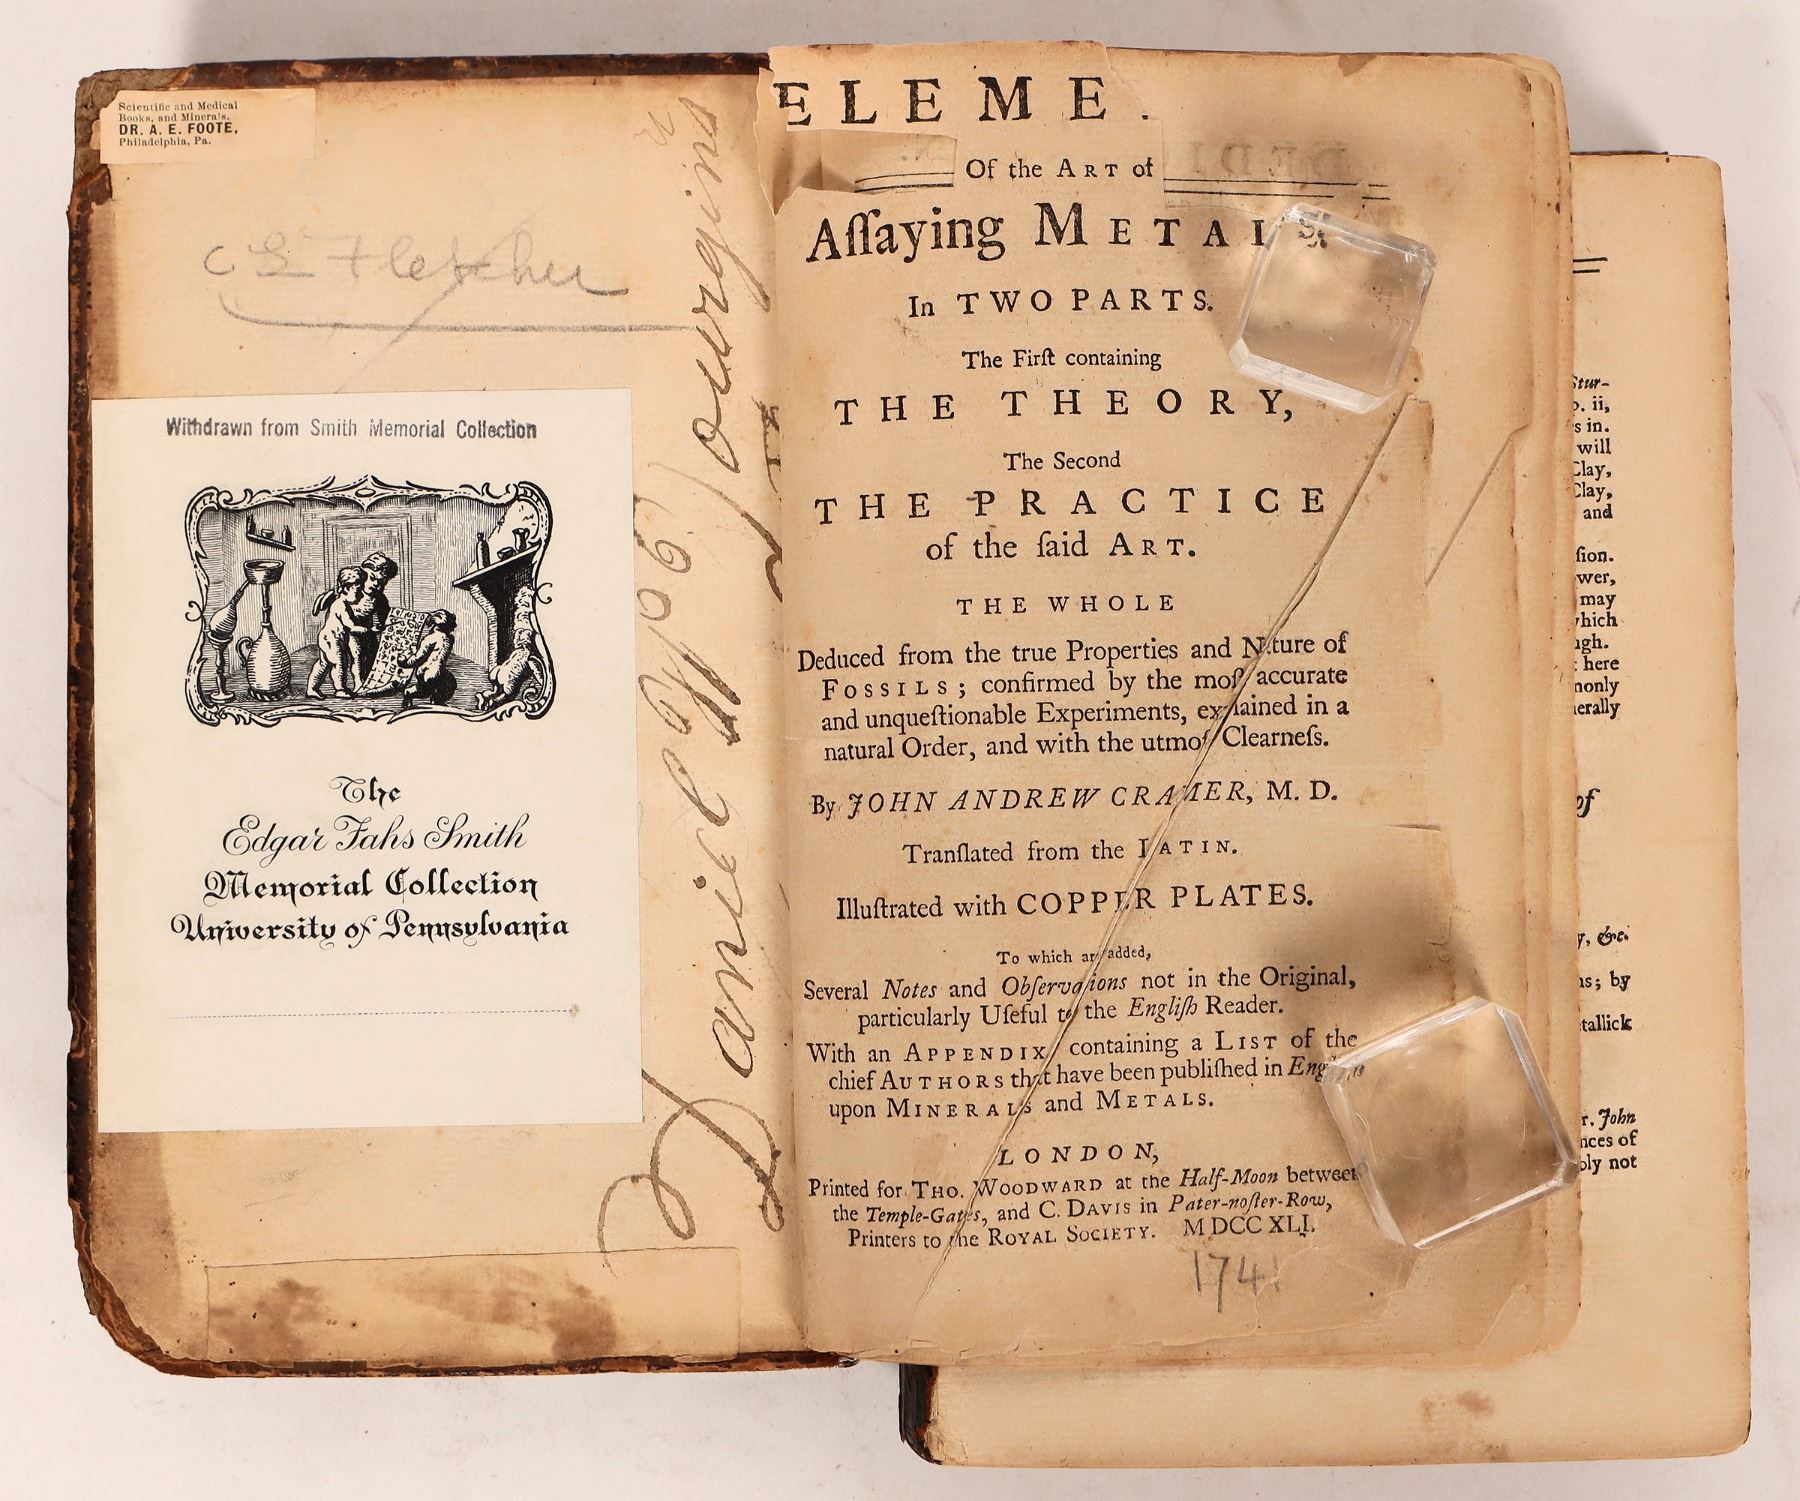 Scientific and Medical
Books, and Minerals.
DR. A. E. FOOTE,
Philadelphia, Pa.
C E Fletcher
Withdrawn from Smith Memorial Collection
The
Edgar Fahs Smith
Memorial Collection
University of Pennsylvania
Daniel
ELEME
Of the ART of
Aſſaying METALS.
In TWO PARTS.
The Firſt containing
THE THEORY,
The Second
THE PRACTICE
of the ſaid ART.
THE WHOLE
Deduced from the true Properties and Nature of
FOSSILS; confirmed by the moſt accurate
and unqueſtionable Experiments, explained in a
natural Order, and with the utmoſt Clearneſs.
By JOHN ANDREW CRAMER, M. D.
Tranſlated from the LATIN.
Illuſtrated with COPPER PLATES.
To which are added,
Several Notes and Obſervations not in the Original,
particularly Uſeful to the Engliſh Reader.
With an APPENDIX containing a LIST of the
chief AUTHORS that have been publiſhed in Engliſh
upon MINERALS and METALS.
LONDON,
Printed for THO. WOODWARD at the Half-Moon between
the Temple-Gates, and C. DAVIS in Pater-noſter-Row,
Printers to the ROYAL SOCIETY. MDCC XLI.
1741
Stur-
ii,
in.
will
Clay,
Clay,
and
ſion.
may
which
here
of
&c.
by
John
of
not